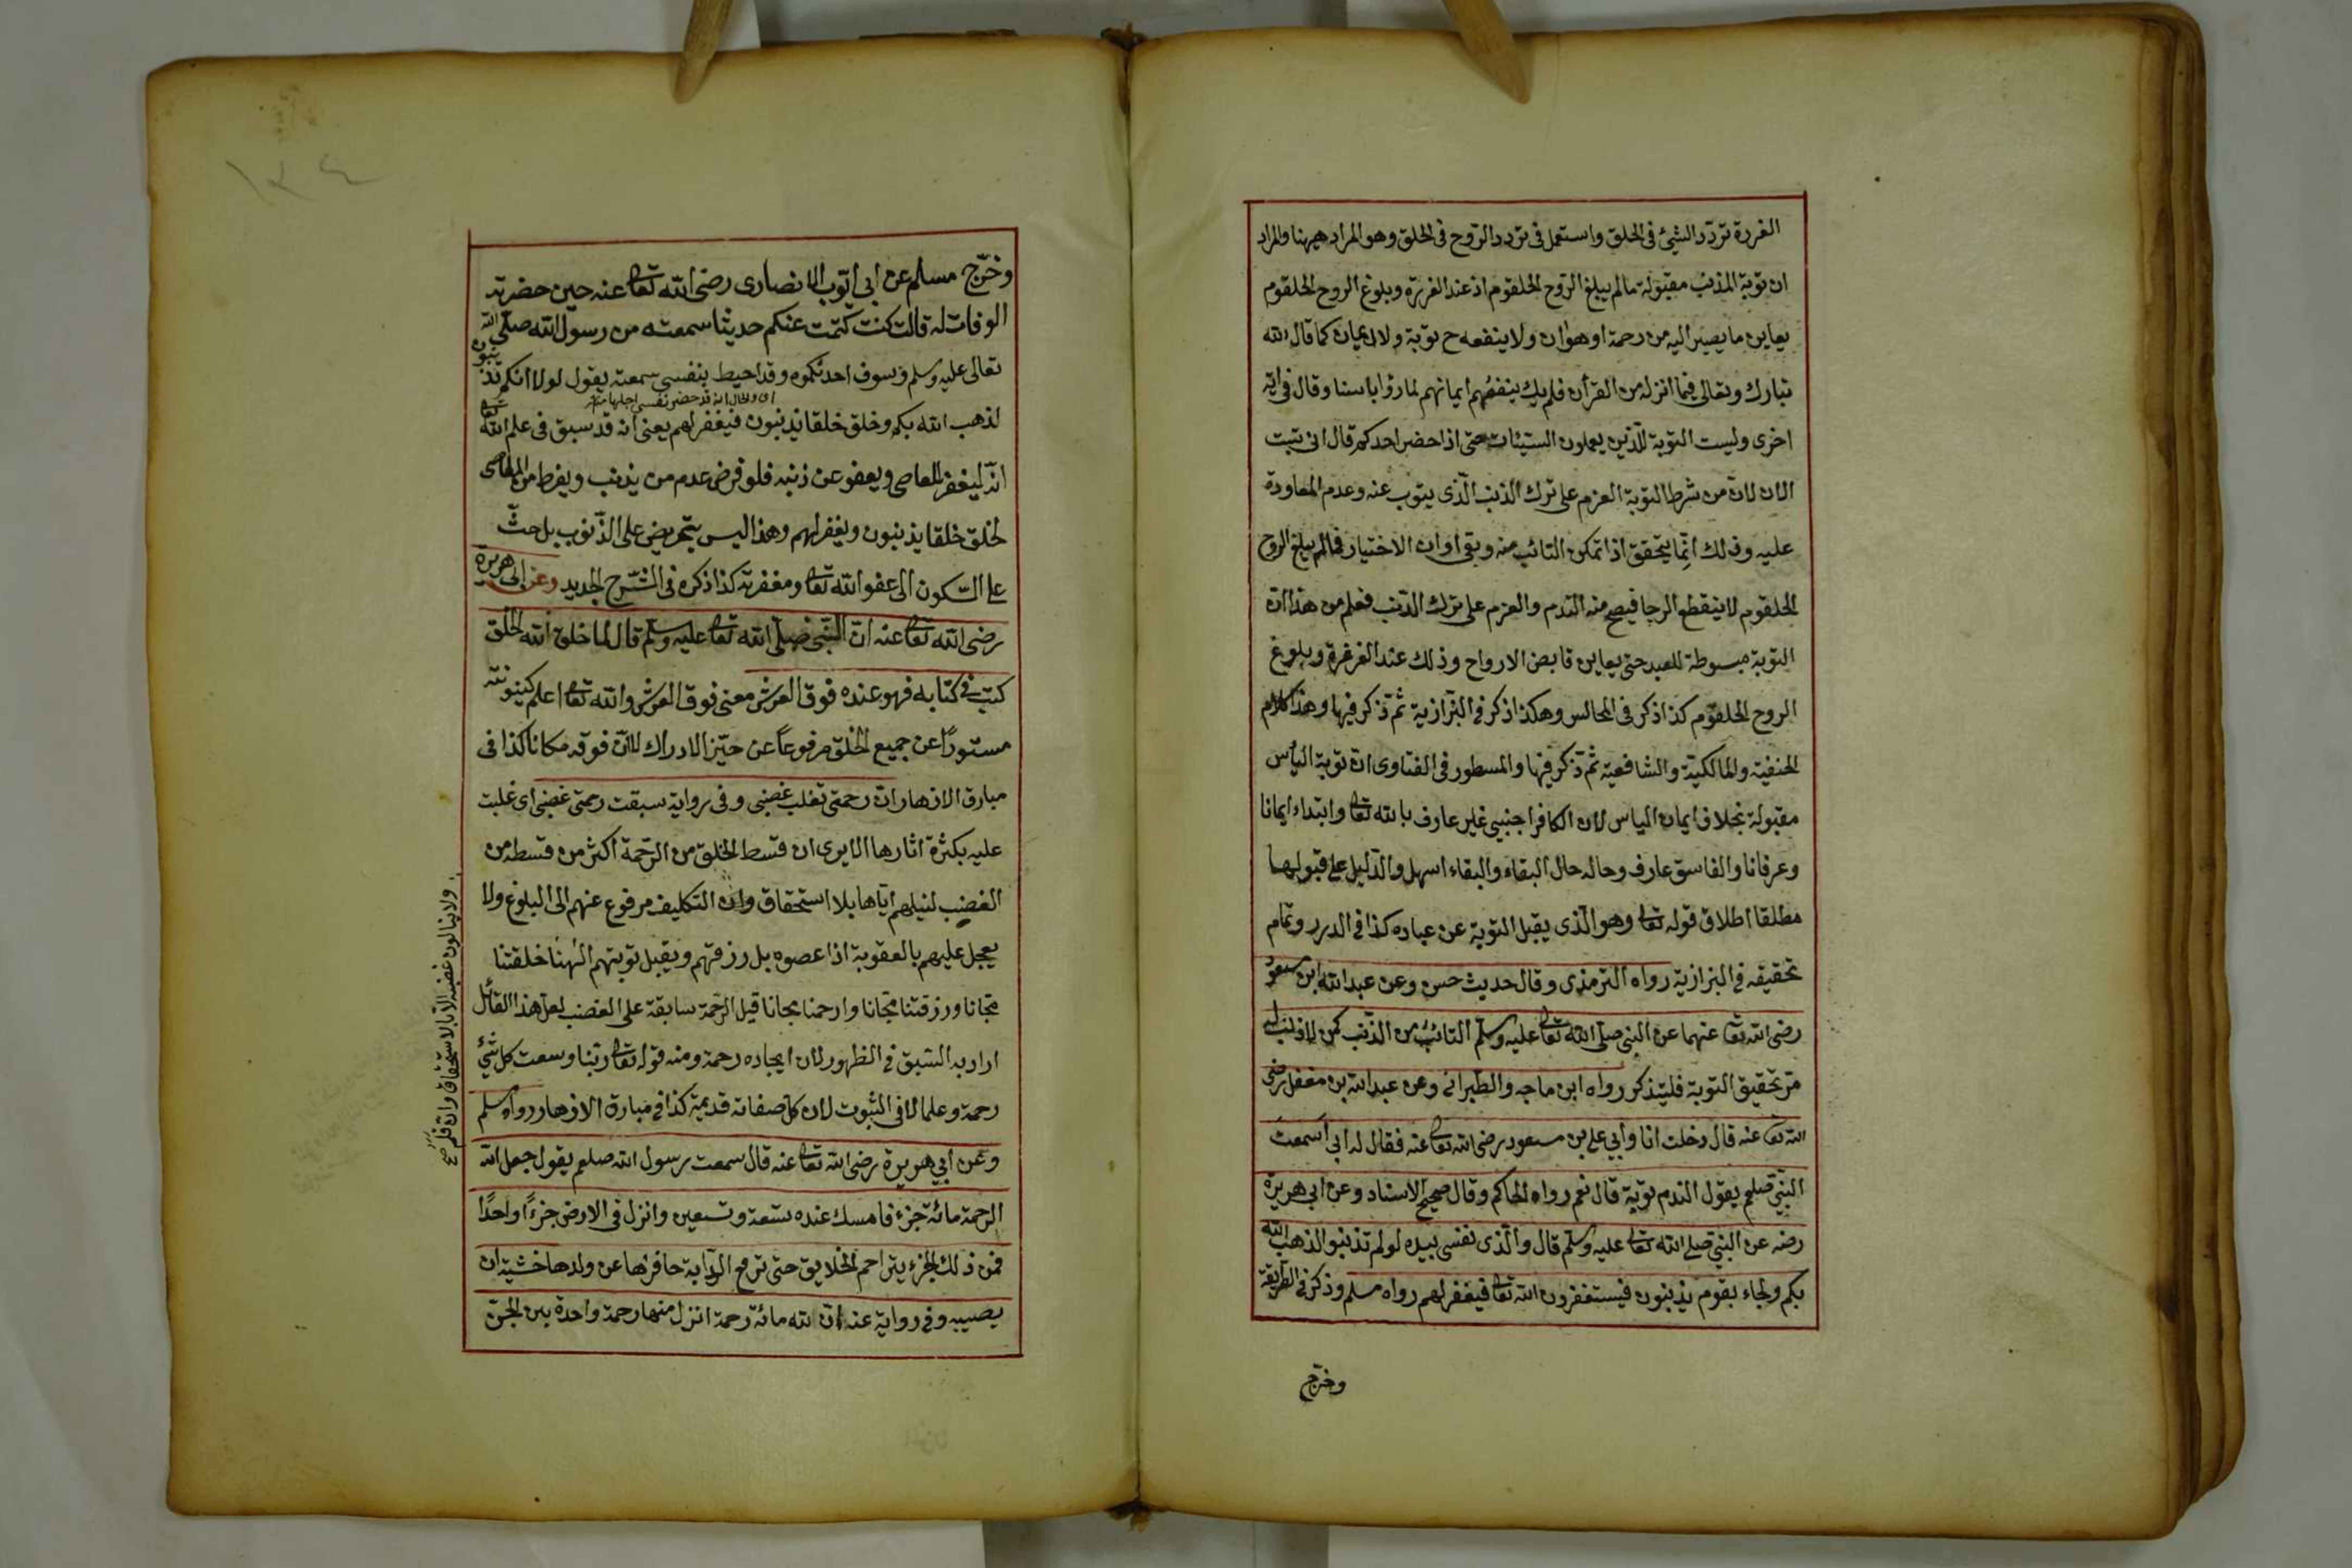 الغررة تردّد الشئ في الحلق واستعمل في تردد الرّوح في الحلق وهو المراد هيهنا والمراد
ان توبة المذنب مقبولة مالم يبلغ الرّوح الحلقوم اذ عند الغرره وبلوغ الروح الحلقوم
يعاين ما يصير اليه من رحمة او هوان ولا ينفعه ح توبة ولا ايمان كما قال الله
تبارك وتعالى فيما انزله من القرآن فلم يك ينفعهم ايمانهم لما رؤا باسنا وقال في اية
اخرى وليست التوبة للّذين يعملون السيّئات حتى اذا حضر احدكم قال انى تبت
الان لانّ من شرط التوبة العزم على ترك الذنب الّذى يتوب عنه وعدم المعاودة
عليه وذلك انّما يتحقق اذا تمكن التائب منه وبقى اوان الاختيار فمالم يبلغ الروح
الحلقوم لا ينقطع الرجا فيصح منه الندم والعزم على ترك الذنب فعلم من هذا انّ
التوبة مبسوطة للعبد حتى يعاين قابض الارواح وذلك عند الغرغرة وبلوغ
الروح الحلقوم كذا ذكر في المجالس وهكذا ذكر في البزازية ثم ذكر فيها وهذا كلام
الحنفيّة والمالكيّة والشافعيّة ثم ذكر فيها والمسطور في الفتاوى انّ توبة اليأس
مقبولة بخلاف ايمان الياس لان الكافر اجنبى غير عارف بالله تعالى وابتداء ايمانا
وعرفانا والفاسق عارف وحاله حال البقاء والبقاء اسهل والدّليل على قبولها
مطلقا اطلاق قوله تعالى وهو الّذى يقبل التوبة عن عباده كذا في الدرر وتمام
تحقيقه في البزازية رواه الترمذى وقال حديث حسن وعن عبد الله ابن مسعود
رضى الله تعا عنهما عن النبي صلّى الله تعالى عليه وسلّم التائب من الذّنب كمن لا ذنب له
مرّ تحقيق التوبة فليتذكر رواه ابن ماجه والطبرانى وعن عبد الله بن مغفل رضى
الله تعا عنه قال دخلت انا وأبي على بن مسعود رضى الله تعالى عنه فقال له ابى اسمعت
النبيّ صلعم يقول الندم توبة قال نعم رواه الحاكم وقال صحيح الاسناد وعن ابى هريرة
رضه عن النبي صلى الله تعالى عليه وسلّم قال والّذى نفسى بيده لو لم تذنبوا لذهب الله
بكم ولجاء بقوم يذنبون فيستغفرون الله تعالى فيغفر لهم رواه مسلم وذكر في الطريقة
وخرّج
١٣٤
وخرّج مسلم عن ابى ايّوب الانصارى رضى الله تعالى عنه حين حضرته
الوفات له قالت كنت كتمت عنكم حديثا سمعته من رسول الله صلّى الله
تعالى عليه وسلم وسوف احدثكموه وقد احيط بنفسى سمعته يقول لولا انكم تذنبون
اى والحال انه قد حضر نفسى اجلها
لذهب الله بكم وخلق خلقا يذنبون فيغفر لهم يعنى انه قد سبق في علم الله تعالى
انّه ليغفر للعاصى ويعفو عن ذنبه فلو فرض عدم من يذنب ويفرط من المعاصى
لخلق خلقا يذنبون ويغفر لهم وهذا ليس بتحريض على الذّنوب بل حثّ
على السّكون الى عفو الله تعالى ومغفرته كذا ذكره في الشّرح الجديد وعن ابى هريرة
رضى الله تعالى عنه انّ النّبى صلّى الله تعالى عليه وسلّم قال لما خلق الله الخلق
كتب في كتابه فهو عنده فوق العرش معنى فوق العرش والله تعالى اعلم كينونته
مستورًا عن جميع الخلق مرفوعاً عن حيّز الادراك لا انّ فوقه مكانا كذا في
مبارق الازهار انّ رحمتى تغلب غضبى وفي رواية سبقت رحمتى غضبى اى غلبت
عليه بكثرة اثارها الا يرى ان قسط الخلق من الرّحمة اكثر من قسطه من
الغضب لنيلهم ايّاها بلا استحقاق وان التكليف مرفوع عنهم الى البلوغ ولا
يعجل عليهم بالعقوبة اذا عصوه بل رزقهم ويقبل توبتهم الٰهنا خلقتنا
مجّانا ورزقتنا مجّانا وارحمنا مجانا قيل الرّحمة سابقة على الغضب لعلّ هذا القائل
اراد به السّبق في الظهور لان ايجاده رحمة ومنه قوله تعالى ربّنا وسعت كل شئ
رحمة وعلما لا في الثبوت لان كل صفاته قديمة كذا في مبارق الازهار رواه مسلم
وعن أبي هريرة رضى الله تعالى عنه قال سمعت رسول الله صلعم يقول جعل الله
الرحمة مائة جزء فامسك عنده تسعة وتسعين وانزل في الارض جزءًا واحدًا
فمن ذلك الجزء يتراحم الخلايق حتى ترفع الدّابة حافرها عن ولدها خشية ان
يصيبه وفي رواية عنه انّ لله مائة رحمة انزل منها رحمة واحدة بين الجنّ
ولا ينالون غضبه الّا بالاستحقاق وانّ قلم صح